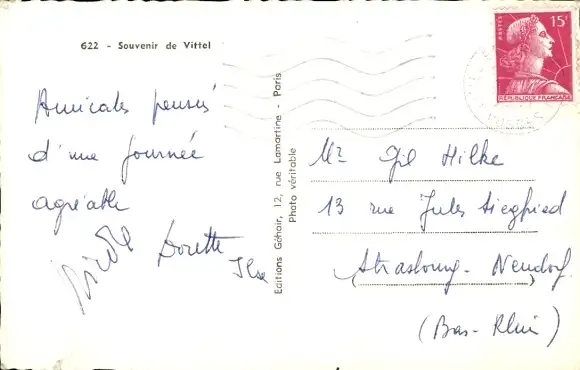 622 - Souvenir de Vittel
Amicales pensées
d'une journée
agréable
Nicole
Dorette
Ilse
Editions Géhair, 12, rue Lamartine - Paris
Photo véritable
POSTES
15f
RÉPUBLIQUE FRANÇAISE
VOSGES
Mr Gil Hilke
13 rue Jules Siegfried
Strasbourg-Neudorf
(Bas-Rhin)